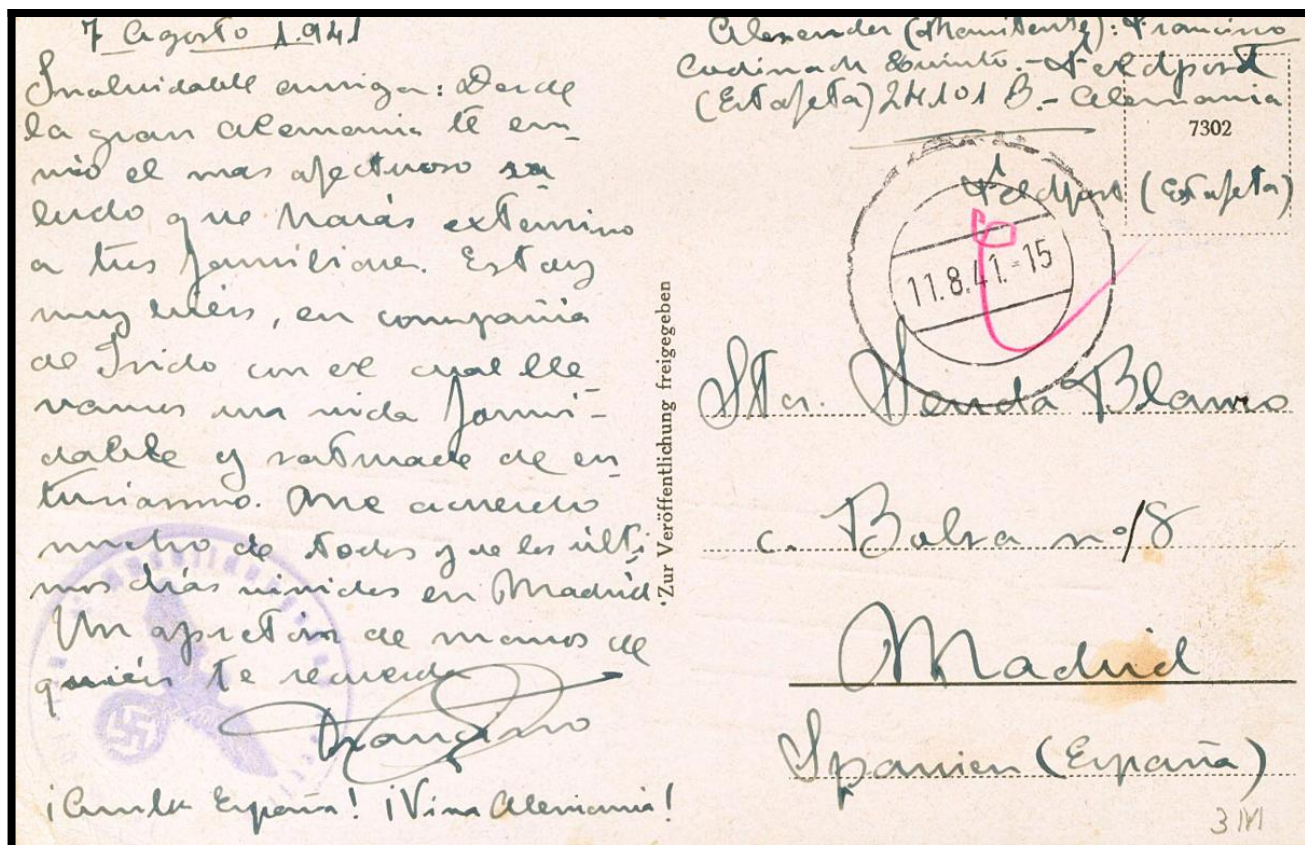 7 Agosto 1.941
Inolvidable amiga: Desde
la gran Alemania te en-
vio el mas afectuoso sa
ludo que harás extensivo
a tus familiares. Estoy
muy bién, en compañia
de Isido con el cual lle-
vamos una vida formi-
dable y saturada de en-
tusiasmo. Me acuerdo
mucho de todos y de los últi
mos dias vividos en Madrid.
Un apretón de manos de
quién te recuerda
Francisco
¡Arriba España! ¡Viva Alemania!
Zur Veröffentlichung freigegeben
(Remitente): Francisco
Codina de Quinto.- Feldpost
(Estafeta) 24101 B.- Alemania
7302
Feldpost (Estafeta)
11.8.41.-15
Sta. Blanco
c. Bolsa nº 18
Madrid
Spanien (España)
3 M